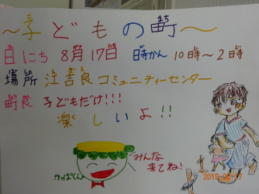 ～子どもの町～
日にち 8月17日 時かん 10時～2時
場所 注吉良コミュニティーセンター
町民 子どもだけ!!!
楽しいよ!!
かっぱくん
みんな
来てね!